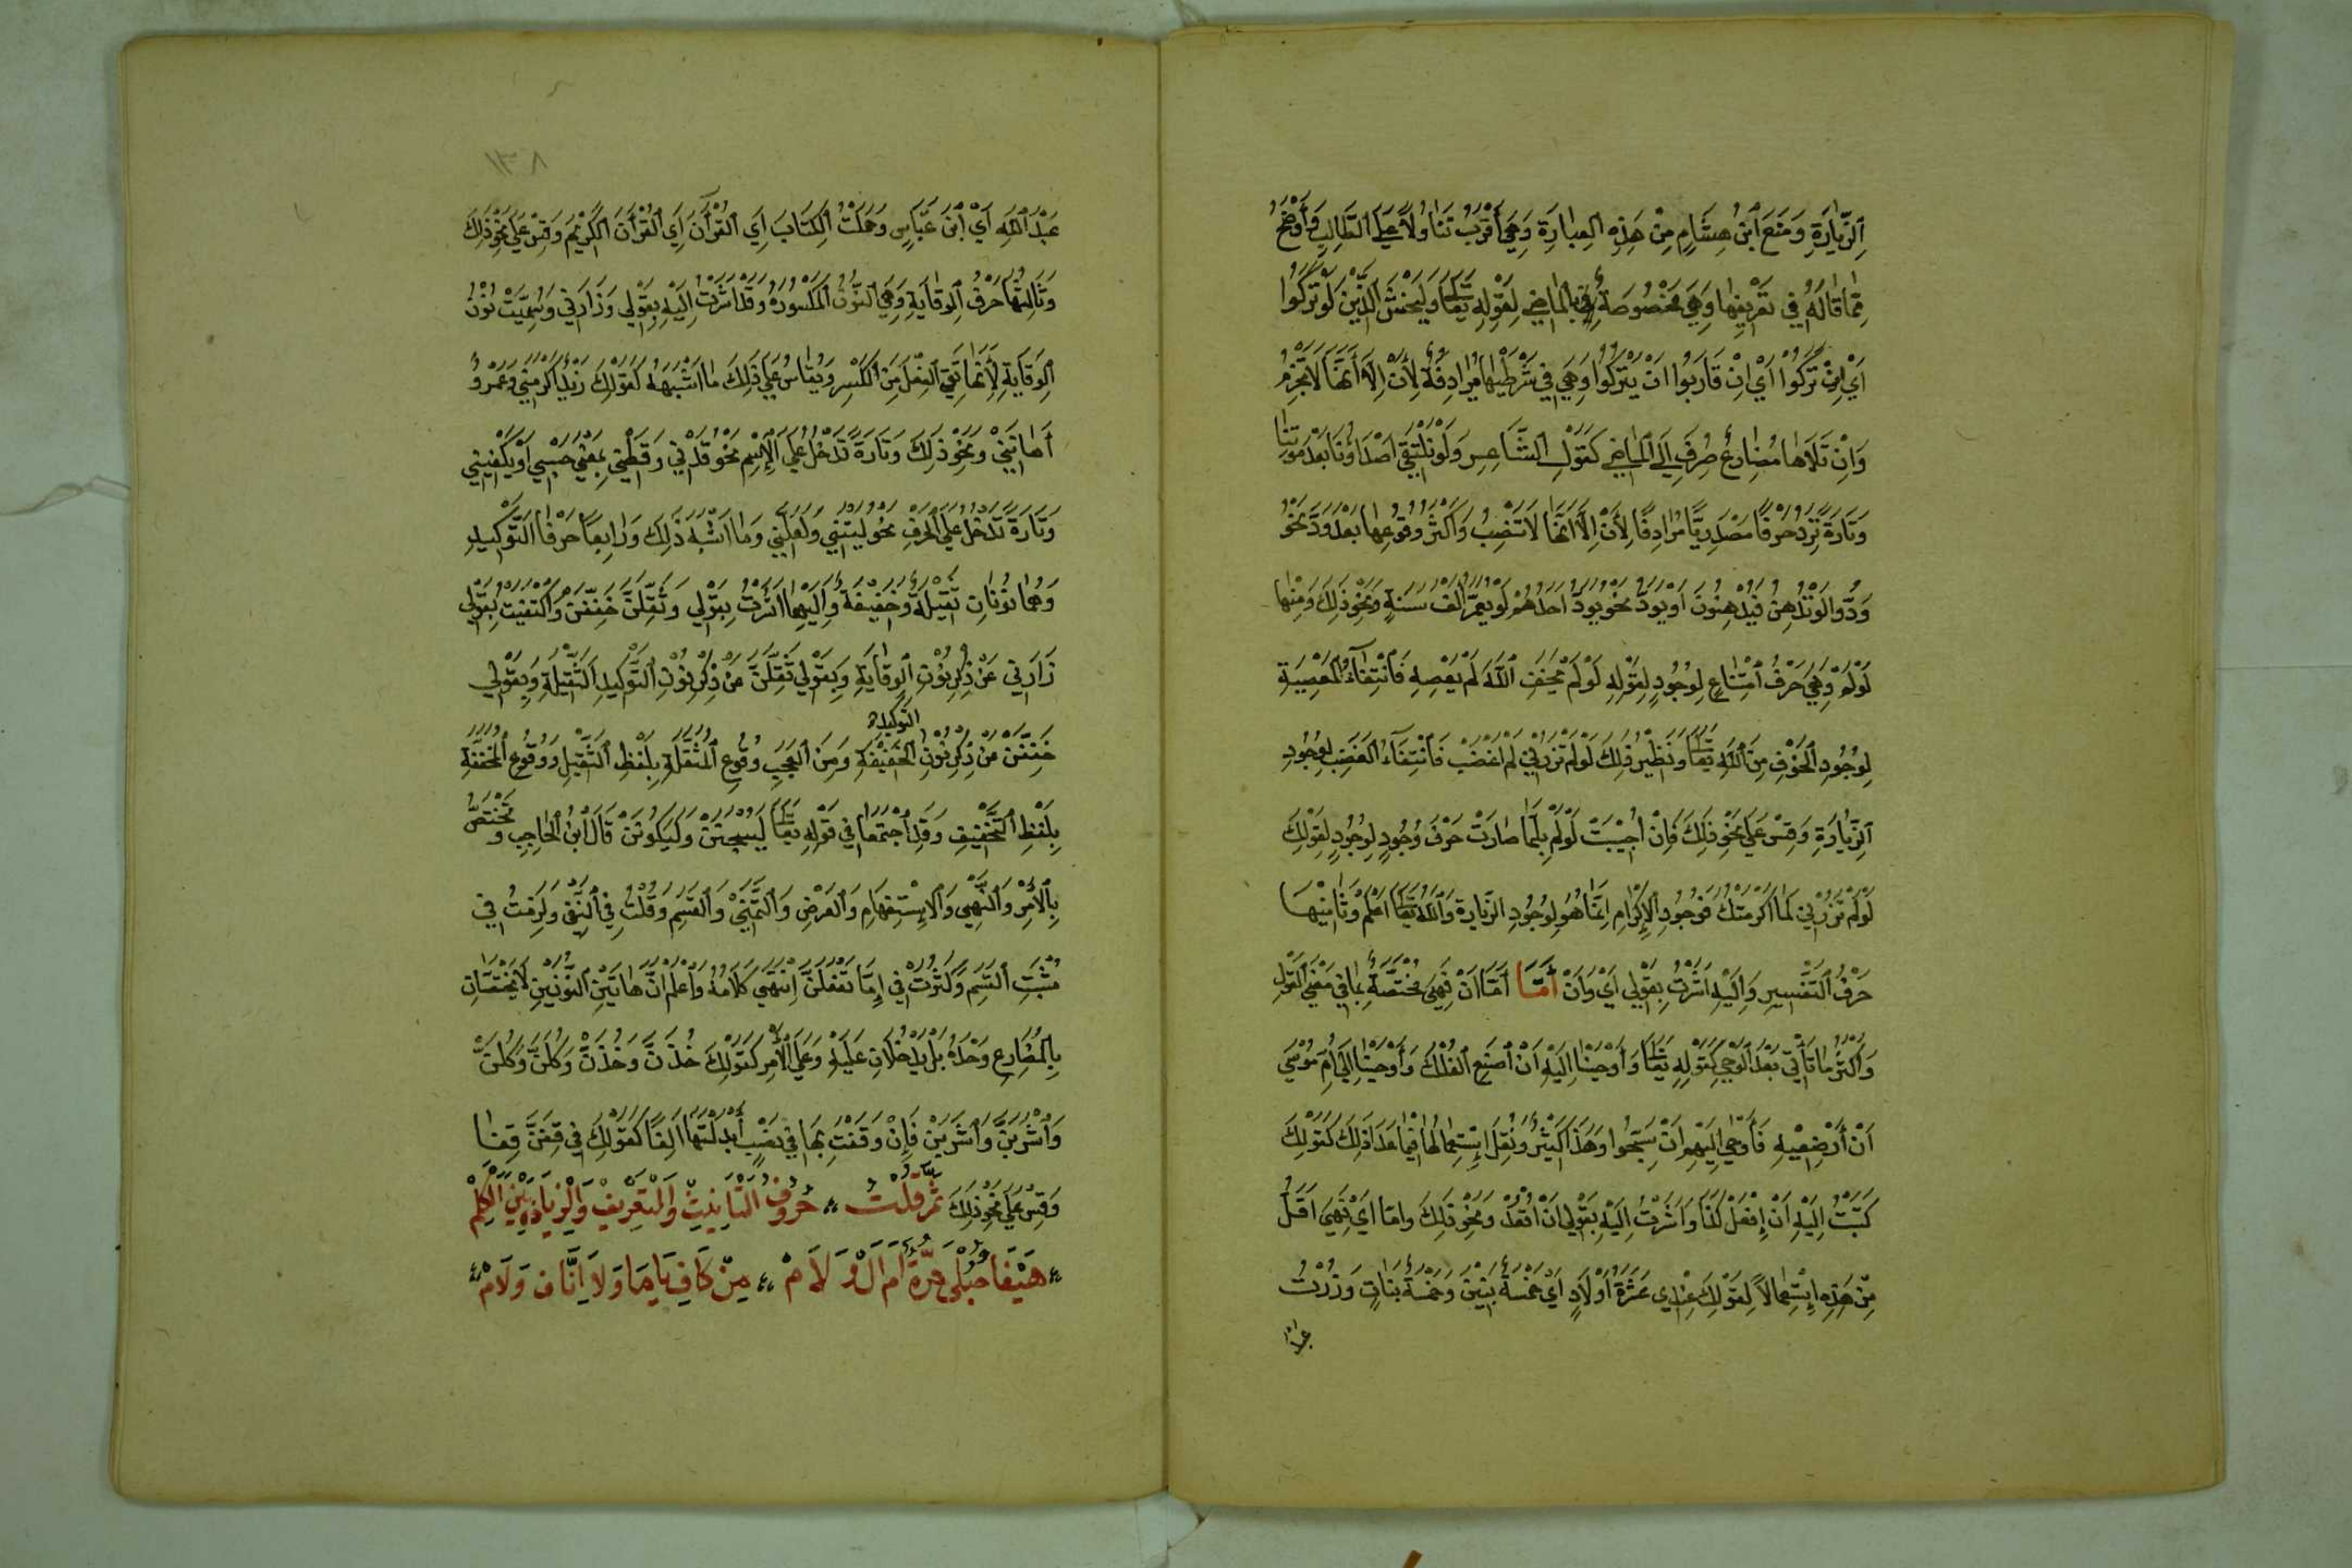 اَلزِّيَارَةِ وَمَنَعَ ابْنُ هِشَامٍ مِنْ هَذِهِ الْعِبَارَةِ وَهِيَ أَقْرَبُ تَنَاوُلاً عَلَى الطَّالِبِ وَأَوْضَحُ
مِمَّا قَالَهُ فِي تَعْرِيفِهَا وَهِيَ مَخْصُوصَةٌ بِالْمَاضِي لِقَوْلِهِ تَعَالَى وَلْيَخْشَ الَّذِينَ لَوْ تَرَكُوا
أَيْ إِنْ تَرَكُوا أَيْ إِنْ قَارَبُوا أَنْ يَتْرُكُوا وَهِيَ فِي شَرْطِيَّتِهَا مُرَادِفَةٌ لِأَنْ إِلَّا أَنَّهَا لَا تَجْزِمُ
وَإِنْ تَلَاهَا مُضَارِعٌ صُرِفَ إِلَى الْمَاضِي كَقَوْلِ الشَّاعِرِ وَلَوْ تَلْتَقِي أَصْدَاؤُنَا بَعْدَ مَوْتِنَا
وَتَارَةً تَرِدُ حَرْفًا مَصْدَرِيًّا مُرَادِفًا لِأَنْ إِلَّا أَنَّهَا لَا تَنْصِبُ وَأَكْثَرُ وُقُوعِهَا بَعْدَ وَدَّ نَحْوُ
وَدُّوا لَوْ تُدْهِنُ فَيُدْهِنُونَ أَوْ يَوَدُّ نَحْوُ يَوَدُّ أَحَدُهُمْ لَوْ يُعَمَّرُ أَلْفَ سَنَةٍ وَنَحْوِ ذَلِكَ وَمِنْهَا
لَوْ لَمْ وَهِيَ حَرْفُ امْتِنَاعٍ لِوُجُودٍ لِقَوْلِهِ لَوْ لَمْ يَخَفِ اللَّهَ لَمْ يَعْصِهِ فَانْتِفَاءُ الْمَعْصِيَةِ
لِوُجُودِ الْخَوْفِ مِنَ اللَّهِ تَعَالَى وَنَظِيرُ ذَلِكَ لَوْ لَمْ تَزُرْنِي لَمْ أَغْضَبْ فَانْتِفَاءُ الْغَضَبِ لِوُجُودِ
الزِّيَارَةِ وَقِسْ عَلَى نَحْوِ ذَلِكَ فَإِنْ أُجِيبَتْ لَوْ لَمْ بِلَمَا صَارَتْ حَرْفَ وُجُودٍ لِوُجُودٍ لِقَوْلِكَ
لَوْ لَمْ تَزُرْنِي لَمَا أَكْرَمْتُكَ فَوُجُودُ الْإِكْرَامِ إِنَّمَا هُوَ لِوُجُودِ الزِّيَارَةِ وَاللَّهُ تَعَالَى أَعْلَمُ وَثَامِنُهَا
حَرْفُ التَّفْسِيرِ وَإِلَيْهِ أَشَرْتُ بِقَوْلِي أَيْ وَأَنْ أَمَّا أَمَّا أَنْ فَهِيَ مُخْتَصَّةٌ بِمَا فِي مَعْنَى الْقَوْلِ
وَأَكْثَرُ مَا تَأْتِي بَعْدَ الْوَحْيِ كَقَوْلِهِ تَعَالَى وَأَوْحَيْنَا إِلَيْهِ أَنِ اصْنَعِ الْفُلْكَ وَأَوْحَيْنَا إِلَى أُمِّ مُوسَى
أَنْ أَرْضِعِيهِ فَأَوْحَى إِلَيْهِمْ أَنْ سَبِّحُوا وَهَذَا كَثِيرٌ وَنُقِلَ اسْتِعْمَالُهَا فِيمَا عَدَا ذَلِكَ كَقَوْلِكَ
كَتَبْتُ إِلَيْهِ أَنْ إِفْعَلْ كَذَا وَأَشَرْتُ إِلَيْهِ بِقَوْلِي أَنْ اقْعُدْ وَنَحْوِ ذَلِكَ وَأَمَّا أَيْ فَهِيَ أَقَلُّ
مِنْ هَذِهِ اسْتِعْمَالاً لِقَوْلِكَ عِنْدِي عَشَرَةُ أَوْلَادٍ أَيْ خَمْسَةُ بَنِينَ وَخَمْسَةُ بَنَاتٍ وَزُرْتُ
عبد
١٣٨
عَبْدَ اللَّهِ أَيْ ابْنَ عَبَّاسٍ وَحَمَلْتُ الْكِتَابَ أَيِ الْقُرْآنَ أَيِ الْقُرْآنَ الْكَرِيمَ وَقِسْ عَلَى نَحْوِ ذَلِكَ
وَثَالِثُهَا حَرْفُ الْوِقَايَةِ وَهِيَ النُّونُ الْمَكْسُورَةُ وَقَدْ أَشَرْتُ إِلَيْهِ بِقَوْلِي وَزَادَنِي وَسُمِّيَتْ نُونُ
الْوِقَايَةِ لِأَنَّهَا تَقِي الْفِعْلَ مِنَ الْكَسْرِ وَيُقَاسُ عَلَى ذَلِكَ مَا أَشْبَهَهُ كَقَوْلِكَ زَيْدٌ أَكْرَمَنِي وَعَمْرٌو
أَهَانَنِي وَنَحْوِ ذَلِكَ وَتَارَةً تَدْخُلُ عَلَى الْإِسْمِ نَحْوُ قَدْنِي وَقَطْنِي بِمَعْنَى حَسْبِي أَوْ يَكْفِينِي
وَتَارَةً تَدْخُلُ عَلَى الْحَرْفِ نَحْوُ لَيْتَنِي وَلَعَلَّنِي وَمَا أَشْبَهَ ذَلِكَ وَرَابِعًا حَرْفَا التَّوْكِيدِ
وَهُمَا نُونَانِ ثَقِيلَةٌ وَخَفِيفَةٌ وَإِلَيْهِمَا أَشَرْتُ بِقَوْلِي وَثَقِّلَنَّ خَفِّفَنْ وَاكْتَفَيْتُ بِقَوْلِي
زَادَنِي عَنْ ذِكْرِ نُونِ الْوِقَايَةِ وَبِقَوْلِي ثَقِّلَنَّ عَنْ ذِكْرِ نُونِ التَّوْكِيدِ الثَّقِيلَةِ وَبِقَوْلِي
خَفِّفَنْ عَنْ ذِكْرِ نُونِ التَّوْكِيدِ الْخَفِيفَةِ وَمِنَ الْعَجَبِ وُقُوعُ الْمُثَقَّلَةِ بِلَفْظِ الثَّقِيلِ وَوُقُوعُ الْمُخَفَّفَةِ
بِلَفْظِ التَّخْفِيفِ وَقَدِ اجْتَمَعَا فِي قَوْلِهِ تَعَالَى لَيُسْجَنَنَّ وَلَيَكُونَنْ قَالَ ابْنُ الْحَاجِبِ وَتَخْتَصُّ
بِالْأَمْرِ وَالنَّهْيِ وَالْإِسْتِفْهَامِ وَالْعَرْضِ وَالتَّمَنِّي وَالْقَسَمِ وَقَلَّتْ فِي النَّفْيِ وَلَزِمَتْ فِي
مُثْبَتِ الْقَسَمِ وَكَثُرَتْ فِي إِمَّا تَفْعَلَنَّ إِنْتَهَى كَلَامُهُ وَاعْلَمْ أَنَّ هَاتَيْنِ النُّونَيْنِ لَا يَخْتَصَّانِ
بِالْمُضَارِعِ وَحْدَهُ بَلْ يَدْخُلَانِ عَلَيْهِ وَعَلَى الْأَمْرِ كَقَوْلِكَ خُذَنَّ وَخُذَنْ وَكُلَنَّ وَكُلَنْ
وَاشْرَبَنَّ وَاشْرَبَنْ فَإِنْ وَقَفْتَ بِهَا فِي نَصْبٍ أَبْدَلْتَهَا أَلِفًا كَقَوْلِكَ فِي قِفَنْ قِفَا
وَقِسْ عَلَى نَحْوِ ذَلِكَ ثُمَّ قُلْتُ حُرُوفُ التَّأْنِيثِ وَالتَّعْرِيفِ وَالزِّيَادَةِ بَيْنَ الْكَلِمْ
هَيْفَا حُبْلَى حُرَّةٌ أَمْ أَلْ وَلَامْ مِنْ كَافِ يَا مَا وَلَا إِنَّ أَنْ وَلَامْ